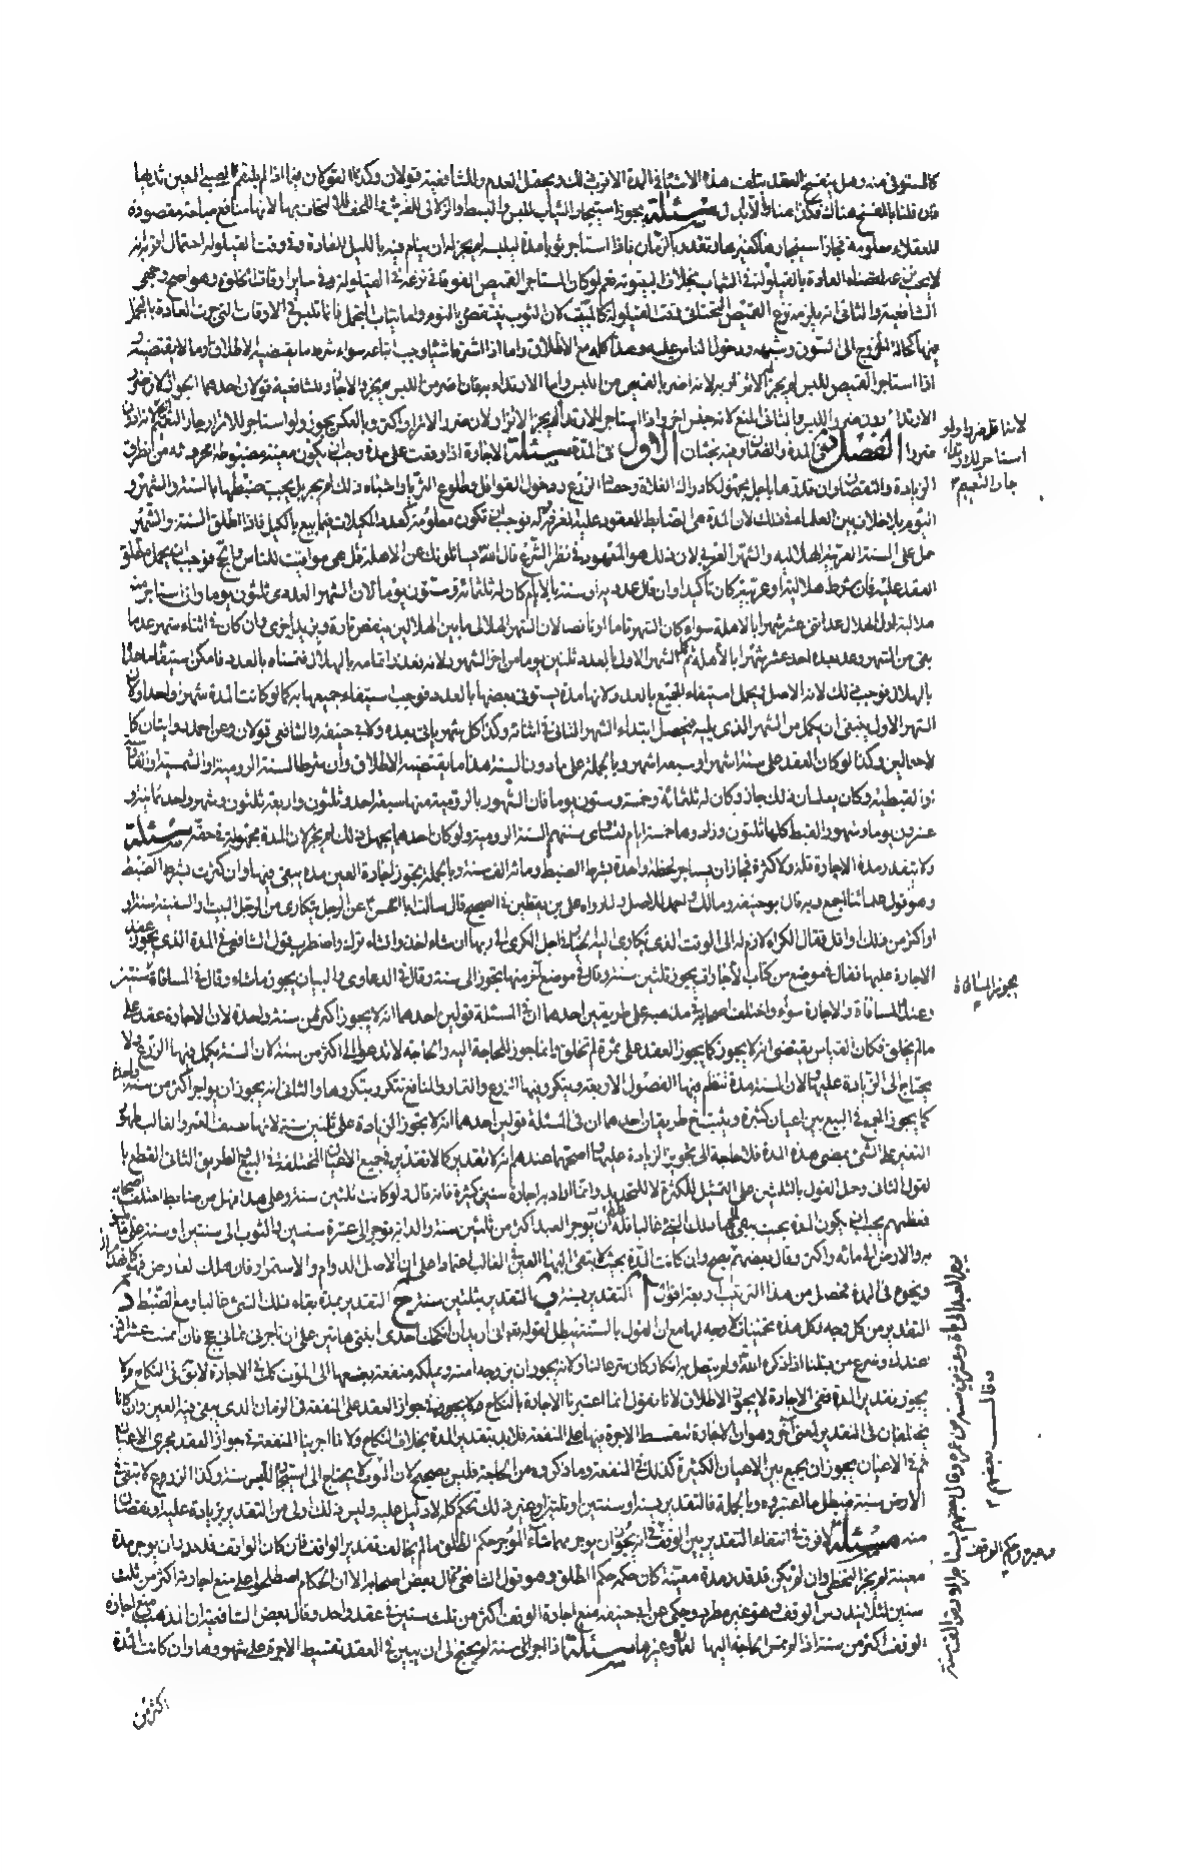 كالمستوفى منه وهل ينفسخ العقد بتلف هذه الاشياء في المدة الاقرب ذلك ويحتمل العدم وللشافعية قولان وكذا القولان فيما اذا لم يلتقم الصبي المعين ثديها
فان قلنا بالفسخ هناك فكذا هنا والا ابدل مسئلة يجوز استيجار الثياب للبس والبسط والزلالي للفرش واللحف للالتحاف بها لانها منافع مباحة مقصودة
للعقلاء معلومة فجاز استيجارها كغيرها وتقدر بالزمان فاذا استأجر ثوبا مدة ليلبسه لم يجز له ان ينام فيه بالليل للعادة وفي وقت القيلولة احتمال اقربه انه
لا يجب نزعه لقضاء العادة بالقيلولة في الثياب بخلاف البيتوتة نعم لو كان المستاجر القميص الفوقاني نزعه في القيلولة وفي ساير اوقات الخلوة وهو اصح وجهي
الشافعية والثاني انه يلزمه نزع القميص التحتاني وقت القيلولة كالمبيت لان الثوب ينتقص بالنوم واما ثياب التجمل فانما تلبس في الاوقات التي جرت العادة بالتجمل
فيها كحالة الخروج الى السوق وشبهه ودخول الناس عليه وهذا كله مع الاطلاق واما اذا اشترط شيئا وجب اتباعه سواء شرط ما يقتضيه الاطلاق او ما لا يقتضيه و
اذا استاجر القميص للبس لم يجز الاتزار به لانه اضر بالقميص من اللبس واما الارتداء به فان اضر من اللبس لم يجز والا جاز وللشافعية قولان احدهما الجواز لان ضرر
الارتداء دون ضرر اللبس والثاني المنع لانه جنس اخر واذا استاجر للارتداء لم يجز الاتزار لان ضرر الاتزار اكثر وبالعكس يجوز ولو استاجر للاتزار جاز التعميم
الفصل في المدة والضمان وفيه بحثان الاول في المدة مسئلة الاجارة اذا وقعت على مدة وجب ان يكون معينة مضبوطة محروسة من تطرق
الزيادة والنقصان وان قدرها باجل مجهول كادراك الغلات وحصاد الزرع ودخول القوافل وطلوع الثريا واشباه ذلك لم يجز بل يجب ضبطها بالسنة والشهر و
اليوم بلا خلاف بين العلماء في ذلك لان المدة هي الضابط للمعقود عليه المعرفة له فوجب ان تكون معلومة كعدد المكيلات فيما بيع بالكيل فاذا اطلق السنة والشهر
حمل على السنة العربية الهلالية والشهر العربي لان ذلك هو المعهود في نظر الشرع قال الله تعالى يسألونك عن الاهلة قل هي مواقيت للناس والحج فوجب ان يحمل مطلق
العقد عليه فان شرط هلالية او عربية كان تأكيدا وان قال عددية او سنة بالايام كان له ثلثمائة وستون يوما لان الشهر العددي ثلثون يوما وان استاجر سنة
هلالية اول الهلال عد اثنى عشر شهرا بالاهلة سواء كان الشهر تاما او ناقصا لان الشهر الهلالي ما بين الهلالين ينقص تارة ويزيد اخرى وان كان في اثناء شهر عد ما
بقي من الشهر وعد بعده احد عشر شهرا بالاهلة ثم كمل الشهر الاول بالعدد ثلثين يوما من اخر الشهور لانه تعذر اتمامه بالهلال فتممناه بالعدد فامكن استيفاء ما عداه
بالهلال فوجب ذلك لانه الاصل ويحتمل استيفاء الجميع بالعدد لانها مدة يستوفى بعضها بالعدد فوجب استيفاء جميعها به كما لو كانت المدة شهرا واحدا ولان
الشهر الاول ينبغي ان يكمل من الشهر الذي يليه فيحصل ابتداء الشهر الثاني في اثنائه وكذا كل شهر ياتي بعده ولابي حنيفة والشافعي قولان وعن احمد روايتان كا
لاحتمالين وكذا لو كان العقد على ستة اشهر او سبعة اشهر وبالجملة على ما دون السنة هذا ما يقتضيه الاطلاق وان شرطا السنة الرومية او الشمسية او الفارسية
او القبطية وكان يعلمان ذلك جاز وكان له ثلثمائة وخمسة وستون يوما فان الشهور بالرومية منها سبعة احد وثلثون واربعة ثلثون وشهر واحد ثمانية و
عشرون يوما وشهور القبط كلها ثلثون وزادوها خمسة ايام لتساوي سنتهم السنة الرومية ولو كان احدهما يجهل ذلك لم يجز لان المدة مجهولة في حقه مسئلة
ولا يتقدر مدة الاجارة قلة ولا كثرة فجاز ان يستاجر لحظة واحدة بشرط الضبط ومائة الف سنة وبالجملة يجوز اجارة العين مدة يبقى فيها وان كثرت بشرط الضبط
وهو قول علمائنا اجمع وبه قال ابو حنيفة ومالك واحمد للاصل ولما رواه علي بن يقطين في الصحيح قال سألت ابا الحسن ع عن الرجل يتكارى من الرجل البيت والسفينة سنة او
اكثر من ذلك او اقل فقال الكراء لازم له الى الوقت الذي تكارى اليه والخيار في اخذ الكرى الى ربها ان شاء اخذ وان شاء ترك واضطرب قول الشافعي في المدة الذي يجوز عقد
الاجارة عليها فقال في موضع من كتاب الاجارات يجوز ثلثين سنة وقال في موضع آخر منها يجوز الى سنة وقال في الدعاوى والبيان يجوز ما شاء وقال في المساقاة سنتين
وعندنا المساقاة والاجارة سواء واختلف اصحابه في مذهبه على طريقين احدهما ان في المسئلة قولين احدهما انه لا يجوز اكثر من سنة واحدة لان الاجارة عقد على
مالم يخلق فكان القياس يقتضي انه لا يجوز كما لا يجوز العقد على ثمرة لم تخلق وانما جوز للحاجة اليه والحاجة لا تدعو الى اكثر من سنة لان السنة يكمل فيها الزرع ولا
يحتاج الى الزيادة عليها ولان السنة مدة تنتظم فيها الفصول الاربعة ويتكرر فيها الزرع والثمار والمنافع تتكرر بتكررها والثاني انه يجوز ان يواجر اكثر من سنة واحدة
كما يجوز الجمع في البيع بين اعيان كثيرة ويثبت طريقان احدهما ان في المسئلة قولين احدهما انه لا يجوز الزيادة على ثلثين سنة لانها نصف العمر والغالب ظهور
التغير على الشيئ بمضي هذه المدة فلا حاجة الى تجويز الزيادة عليها واصحهما عندهم انه لا تقدير كما لا تقدير في جميع الاعيان المختلفة في البيع والطريق الثاني القطع با
لقول الثاني وحمل القول بالثلثين على التمثيل للكثرة لا للتحديد وانما المراد به اجارة سنين كثيرة فانه قال ولو كانت ثلثين سنة وعلى هذا فهل من ضابط اختلف اصحابه
فمعظمهم يجب ان يكون المدة بحيث يبقى اليها ذلك الشيئ غالبا فلا يوجر العبد اكثر من ثلثين سنة والدابة توجر الى عشرة سنين والثوب الى سنتين او سنة على ما يليق
به والارض الى مائة واكثر وقال بعضهم يصح وان كانت المدة بحيث لا يبقى اليها العين في الغالب اعتمادا على ان الاصل الدوام والاستمرار فان هلك لعارض فهو كانهدام الدار
ونحوه في المدة فحصل من هذا الترتيب اربعة اقوال آ التقدير بسنة ب التقدير بثلثين سنة ج التقدير بمدة بقاء ذلك الشيئ غالبا ومع الضبط د
التقدير من كل وجه وكل هذه تخمينات لا وجه لها مع ان القول بالسنة يبطل لقوله تعالى اني اريد ان انكحك احدى ابنتي هاتين على ان تاجرني ثماني حجج فان اتممت عشرا فمن
عندك وشرع من قبلنا اذا ذكره الله تعالى ولم يتصل به انكار كان شرعا لنا ولانه يجوز ان يزوجه امته ويملكه منفعة بضعها الى الموت كما في الاجارة لا يق في النكاح
يجوز تقدير المدة ففي الاجارة لا يجوز الاطلاق لانا نقول انما اعتبرنا الاجارة بالنكاح في جواز العقد على المنفعة في الزمان الذي يبقى فيه العين وان كانا
يختلفان في التقدير لمعنى آخر وهو ان الاجارة تتقسط الاجرة فيها على المنفعة فلا بد بتقدير المدة بخلاف النكاح ولانا اجرينا المنفعة في جواز العقد مجرى الاعيان
ثم في الاعيان يجوز ان يجمع بين الاعيان الكثيرة كذلك في المنفعة وما ذكروه من الحاجة فليس بصحيح لان الثوب لا يحتاج الى استيجاره للبس سنة وكذا الزروع لا تبقى في
الارض سنة فبطل ما اعتبروه وبالجملة فالتقدير بسنة او سنتين او ثلثين او غير ذلك تحكم كله لا دليل عليه وليس ذلك اولى من التقدير بزيادة عليه او نقصان
منه مسئلة لا فرق في انتفاء التقدير بين الوقف في انه يجوز ان يوجر مهما شاء المؤجر حكم المطلق مالم يخالف تقدير الواقف فان كان الواقف قد حد ان يوجر مدة
معينة لم يجز التخطي وان لم يكن قد قدر مدة معينة كان حكمه حكم المطلق وهو قول الشافعي وقال بعض اصحابه الا ان الحكام اصطلحوا على منع اجارة اكثر من ثلث
سنين لئلا يندرس الوقف وهو غير مطرد وحكي عن ابي حنيفة منع اجارة الوقف اكثر من ثلث سنين في عقد واحد وقال بعض الشافعية ان المذهب منع اجارة
الوقف اكثر من سنة اذا لم تمس الحاجة اليها لعمارة وغيرها مسئلة اذا آجر الى سنة لم يحتج الى ان يبين في العقد تقسيط الاجرة على شهورها وان كانت المدة
اكثر من
يجوز المساقاة
وقال بعضهم
وغيره وحكم الوقف